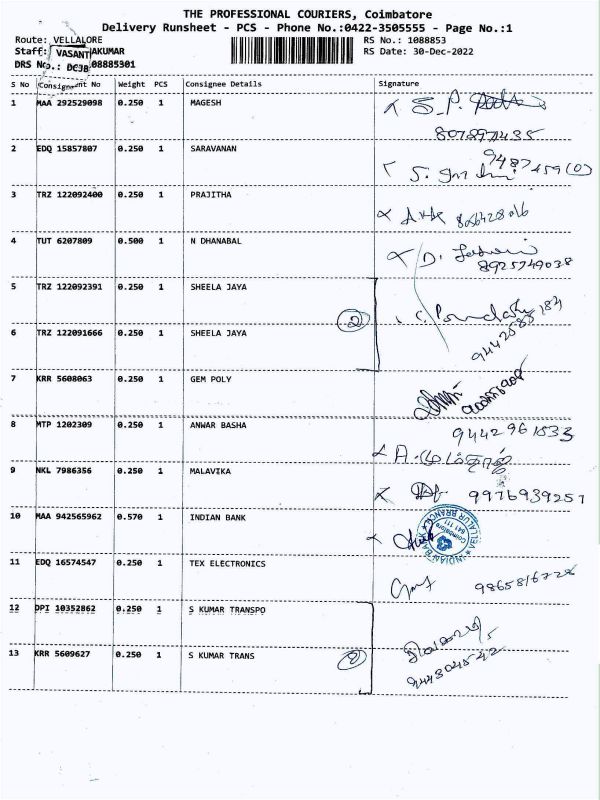 THE PROFESSIONAL COURIERS, Coimbatore
Delivery Runsheet - PCS - Phone No.:0422-3505555 - Page No.:1
Route: VELLALORE
RS No.: 1088853
Staff: VASANTAKUMAR
RS Date: 30-Dec-2022
DRS No.: DCJB 08885301
S No Consignment No Weight PCS Consignee Details Signature
1 MAA 292529098 0.250 1 MAGESH
2 EDQ 15857807 0.250 1 SARAVANAN
3 TRZ 122092400 0.250 1 PRAJITHA
4 TUT 6207809 0.500 1 N DHANABAL
8925749038
5 TRZ 122092391 0.250 1 SHEELA JAYA
2
6 TRZ 122091666 0.250 1 SHEELA JAYA
7 KRR 5608063 0.250 1 GEM POLY
8 MTP 1202309 0.250 1 ANWAR BASHA
9442961533
9 NKL 7986356 0.250 1 MALAVIKA
9976939251
10 MAA 942565962 0.570 1 INDIAN BANK
INDIAN BANK VELLALUR BRANCH
Coimbatore
641 111
11 EDQ 16574547 0.250 1 TEX ELECTRONICS
12 DPI 10352862 0.250 1 S KUMAR TRANSPO
13 KRR 5609627 0.250 1 S KUMAR TRANS
2